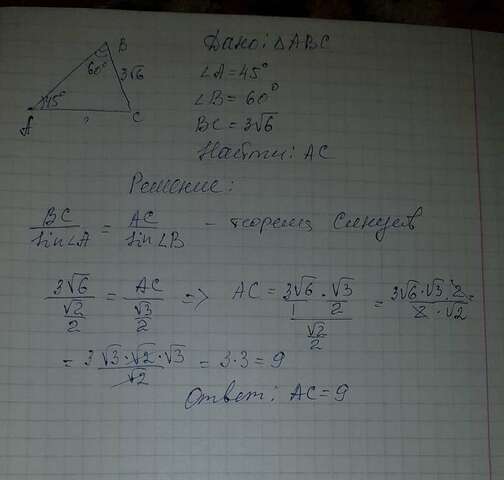 B
60°
3√6
45°
A
?
C
Дано: △ABC
∠A = 45°
∠B = 60°
BC = 3√6
Найти: AC
Решение:
BC/sin∠A = AC/sin∠B – теорема Синусов
3√6/(√2/2) = AC/(√3/2) => AC = (3√6/1 · √3/2)/(√2/2) = 3√6·√3·2/2·√2 =
= 3√3·√2·√3/√2 = 3·3 = 9
Ответ: AC = 9